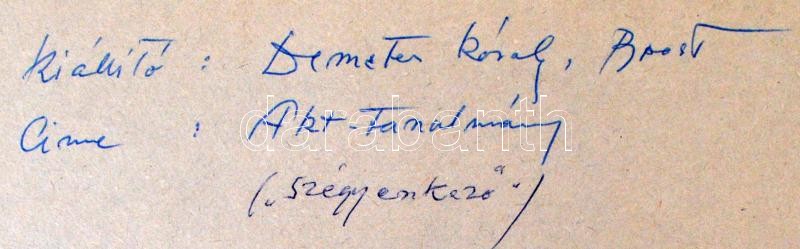 Kiállító : Demeter Károly, Brost
Cime : Akt-Tanulmány
("Szégyenkező")
darabanth